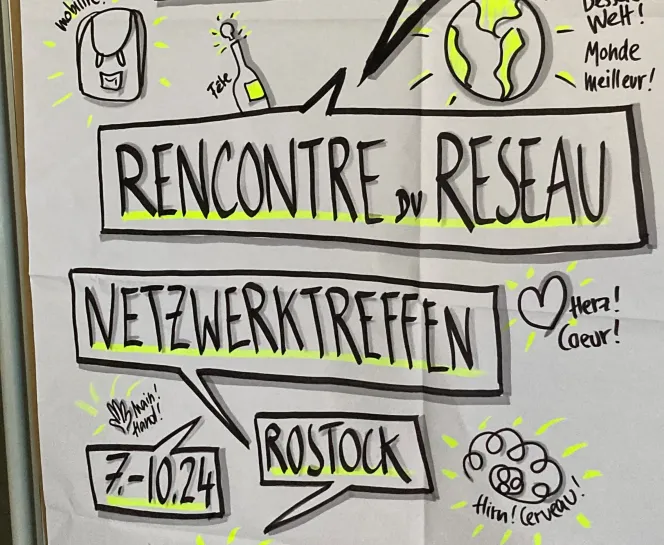 mobilité!
Welt!
Monde
meilleur!
Fête
RENCONTRE DU RESEAU
NETZWERKTREFFEN
Herz!
Coeur!
main!
Hand!
7.-10.24
ROSTOCK
Hirn! Cerveau!